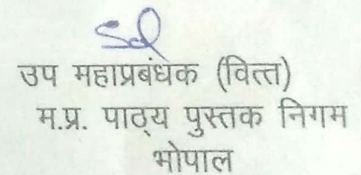 Sd
उप महाप्रबंधक (वित्त)
म.प्र. पाठ्य पुस्तक निगम
भोपाल